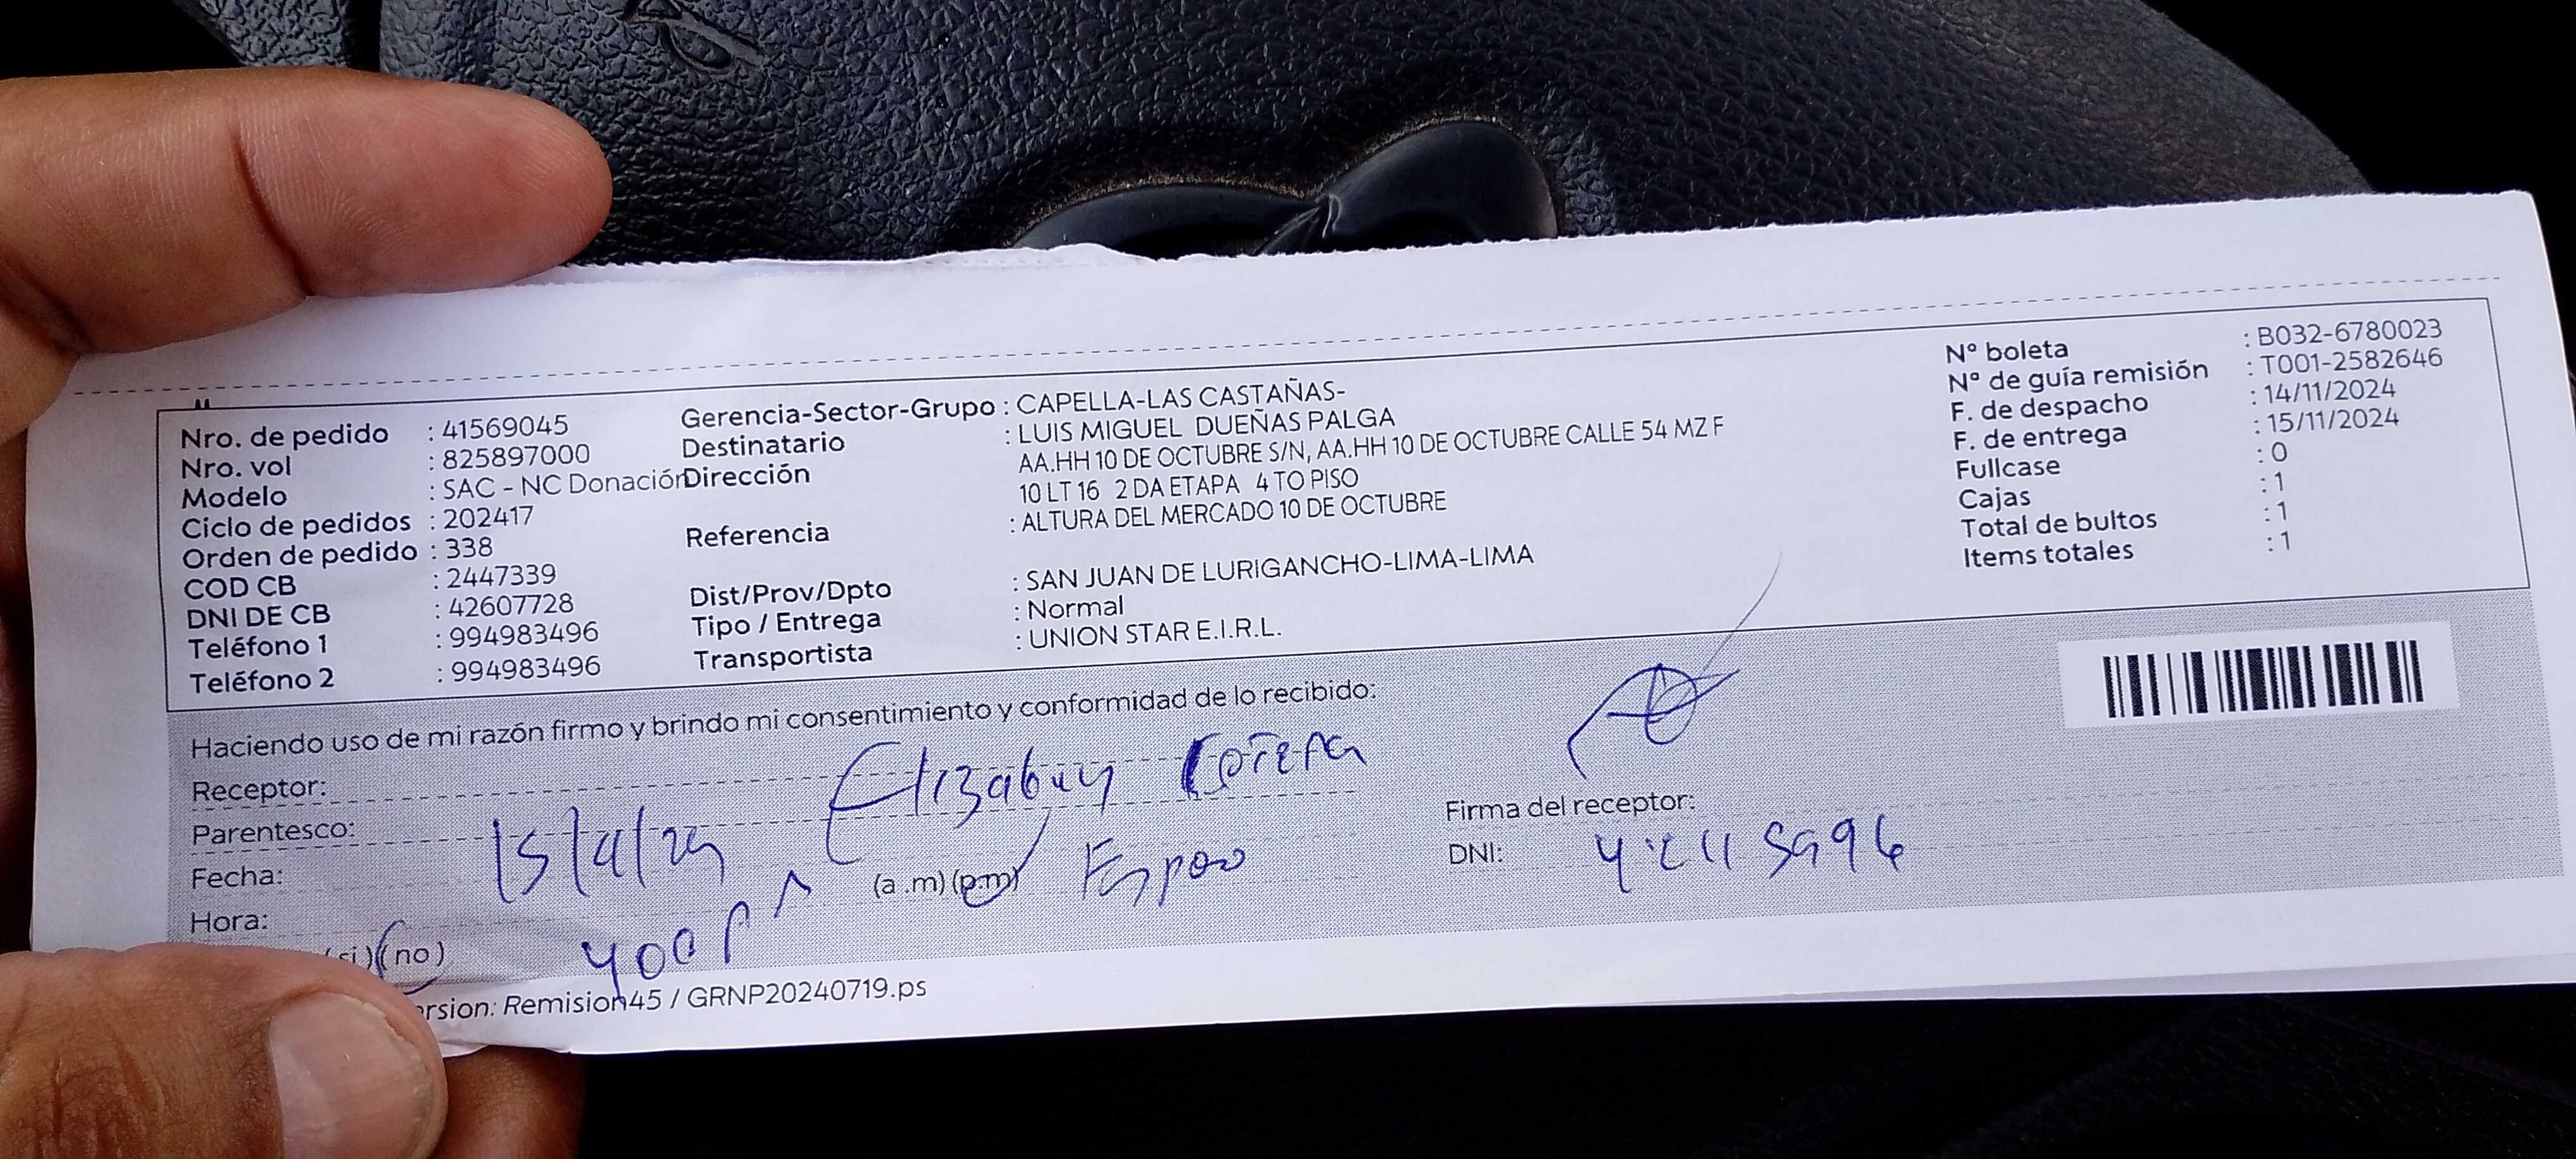 Nro. de pedido : 41569045
Nro. vol : 825897000
Modelo : SAC - NC Donación
Ciclo de pedidos : 202417
Orden de pedido : 338
COD CB : 2447339
DNI DE CB : 42607728
Teléfono 1 : 994983496
Teléfono 2 : 994983496
Gerencia-Sector-Grupo : CAPELLA-LAS CASTAÑAS-
Destinatario : LUIS MIGUEL DUEÑAS PALGA
Dirección AA.HH 10 DE OCTUBRE S/N, AA.HH 10 DE OCTUBRE CALLE 54 MZ F
10 LT 16 2 DA ETAPA 4 TO PISO
Referencia : ALTURA DEL MERCADO 10 DE OCTUBRE
Dist/Prov/Dpto : SAN JUAN DE LURIGANCHO-LIMA-LIMA
Tipo / Entrega : Normal
Transportista : UNION STAR E.I.R.L.
N° boleta : B032-6780023
N° de guía remisión : T001-2582646
F. de despacho : 14/11/2024
F. de entrega : 15/11/2024
Fullcase : 0
Cajas : 1
Total de bultos : 1
Items totales : 1
Haciendo uso de mi razón firmo y brindo mi consentimiento y conformidad de lo recibido:
Receptor:
Parentesco:
Fecha:
Hora: (a .m) (p.m)
(si) (no)
Firma del receptor:
DNI:
rsion: Remision45 / GRNP20240719.ps